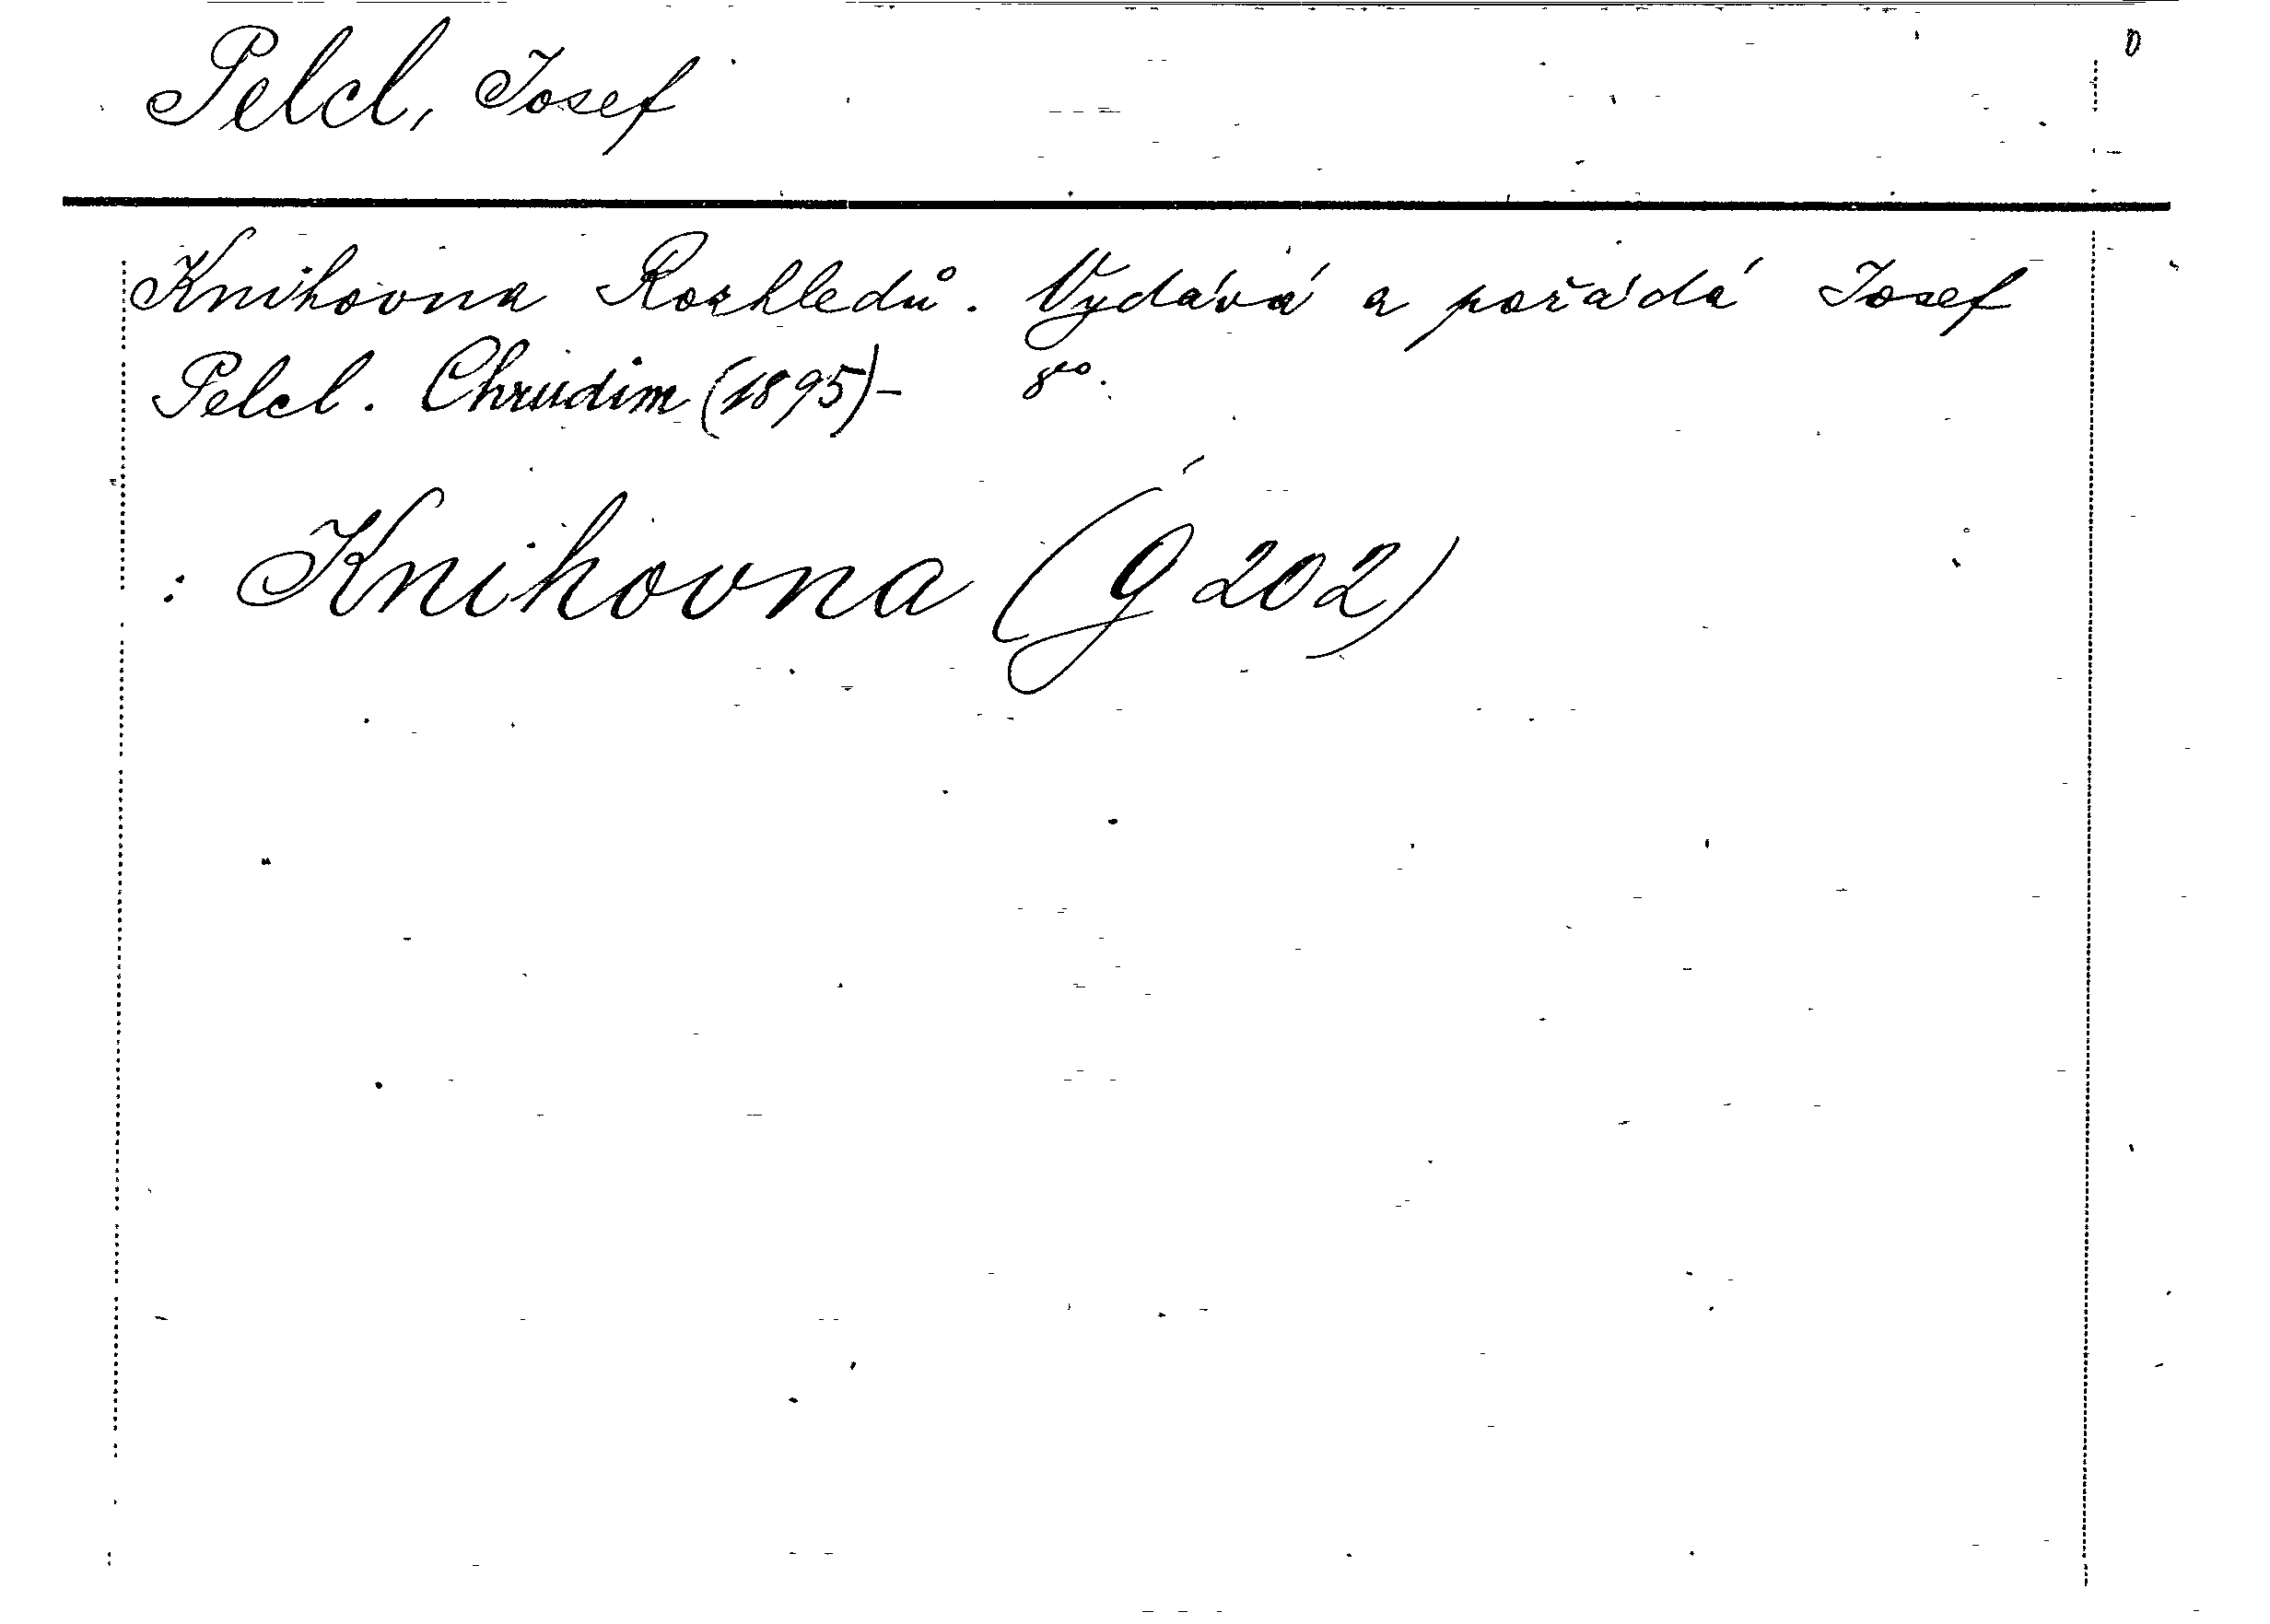 Pelcl, Josef
Knihovna Rozhledů. Vydává a pořádá Josef
Pelcl. Chrudim (1895)- 8vo.
: Knihovna (G 202)